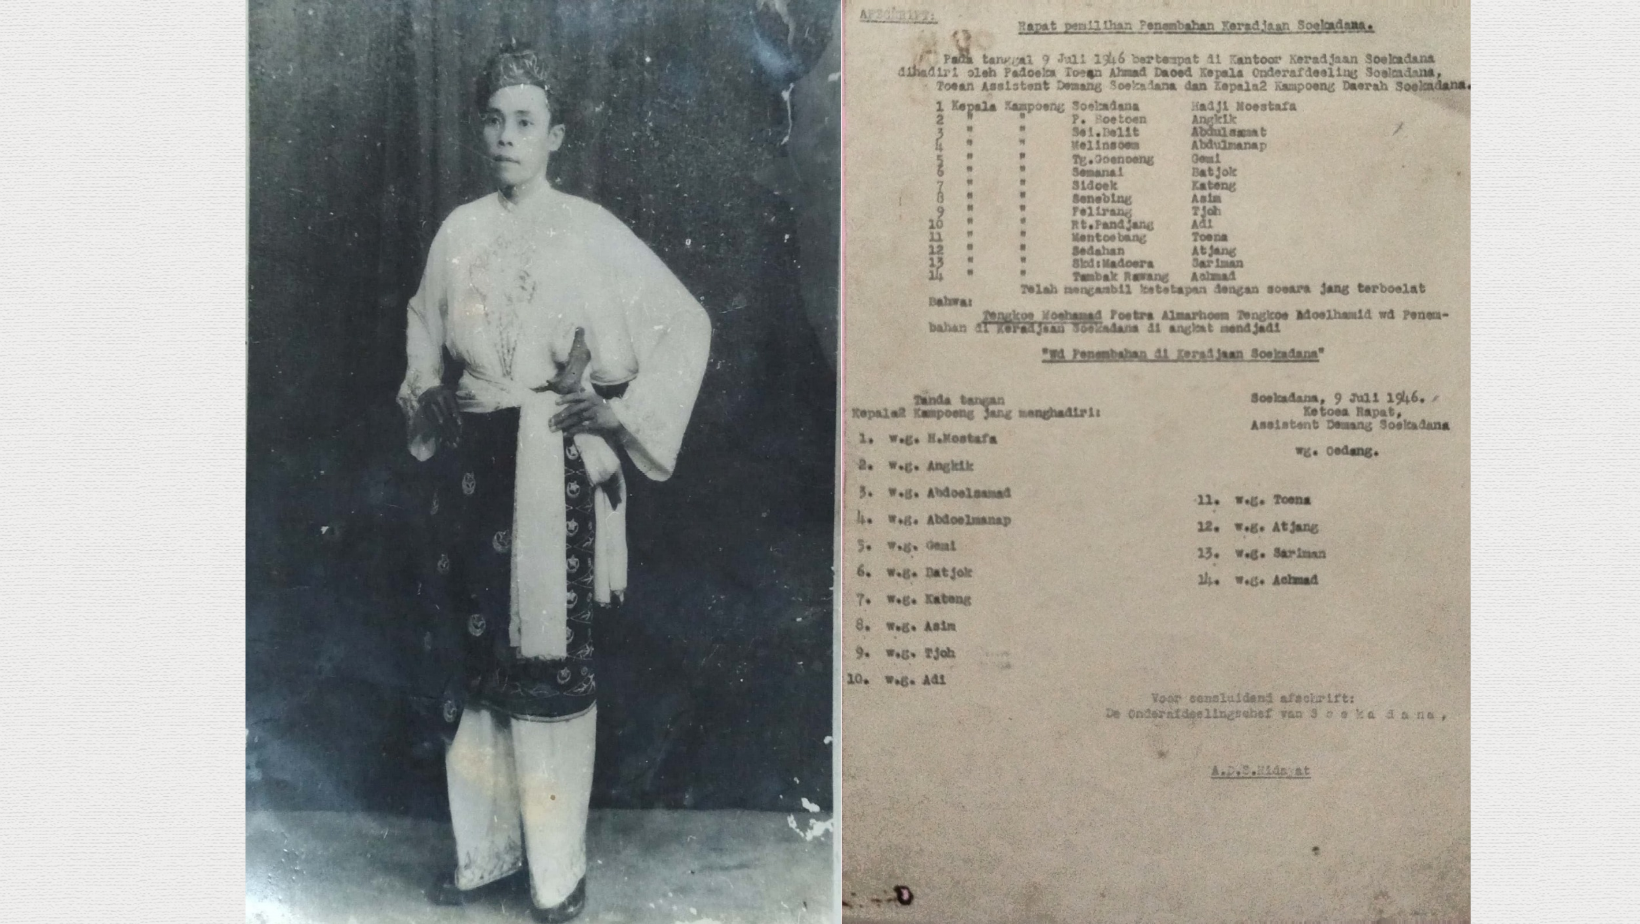 AFSCHRIFT:
Rapat pemilihan Penembahan Keradjaan Soekadana.
Pada tanggal 9 Juli 1946 bertempat di Kantoor Keradjaan Soekadana
dihadiri oleh Padoeka Toean Ahmad Daoed Kepala Onderafdeeling Soekadana,
Toean Assistent Demang Soekadana dan Kepala2 Kampoeng Daerah Soekadana.
1 Kepala Kampoeng Soekadana Hadji Moestafa
2 " " P. Boetoen Angkik
3 " " Sei.Belit Abdulsamat
4 " " Melinsoem Abdulmanap
5 " " Tg.Goenoeng Gemi
6 " " Semanai Batjok
7 " " Sidoek Kateng
8 " " Senebing Asim
9 " " Pelirang Tjoh
10 " " Rt.Pandjang Adi
11 " " Mentoebang Toena
12 " " Sedahan Atjang
13 " " Skd:Madoera Sariman
14 " " Tambak Rawang Achmad
Telah mengambil ketetapan dengan soeara jang terboelat
Bahwa:
Tengkoe Moehamad Poetra Almarhoem Tengkoe Adoelhamid wd Penem-
bahan di Keradjaan Soekadana di angkat mendjadi
"Wd Penembahan di Keradjaan Soekadana"
Tanda tangan
Kepala2 Kampoeng jang menghadiri:
1. w.g. H.Mostafa
2. w.g. Angkik
3. w.g. Abdoelsamad
4. w.g. Abdoelmanap
5. w.g. Gemi
6. w.g. Batjok
7. w.g. Kateng
8. w.g. Asim
9. w.g. Tjoh
10. w.g. Adi
Soekadana, 9 Juli 1946.
Ketoea Rapat,
Assistent Demang Soekadana
wg. Oedang.
11. w.g. Toena
12. w.g. Atjang
13. w.g. Sariman
14. w.g. Achmad
Voor eensluidend afschrift:
De Onderafdeelingschef van S o e k a d a n a,
A.D.S.Hidayat